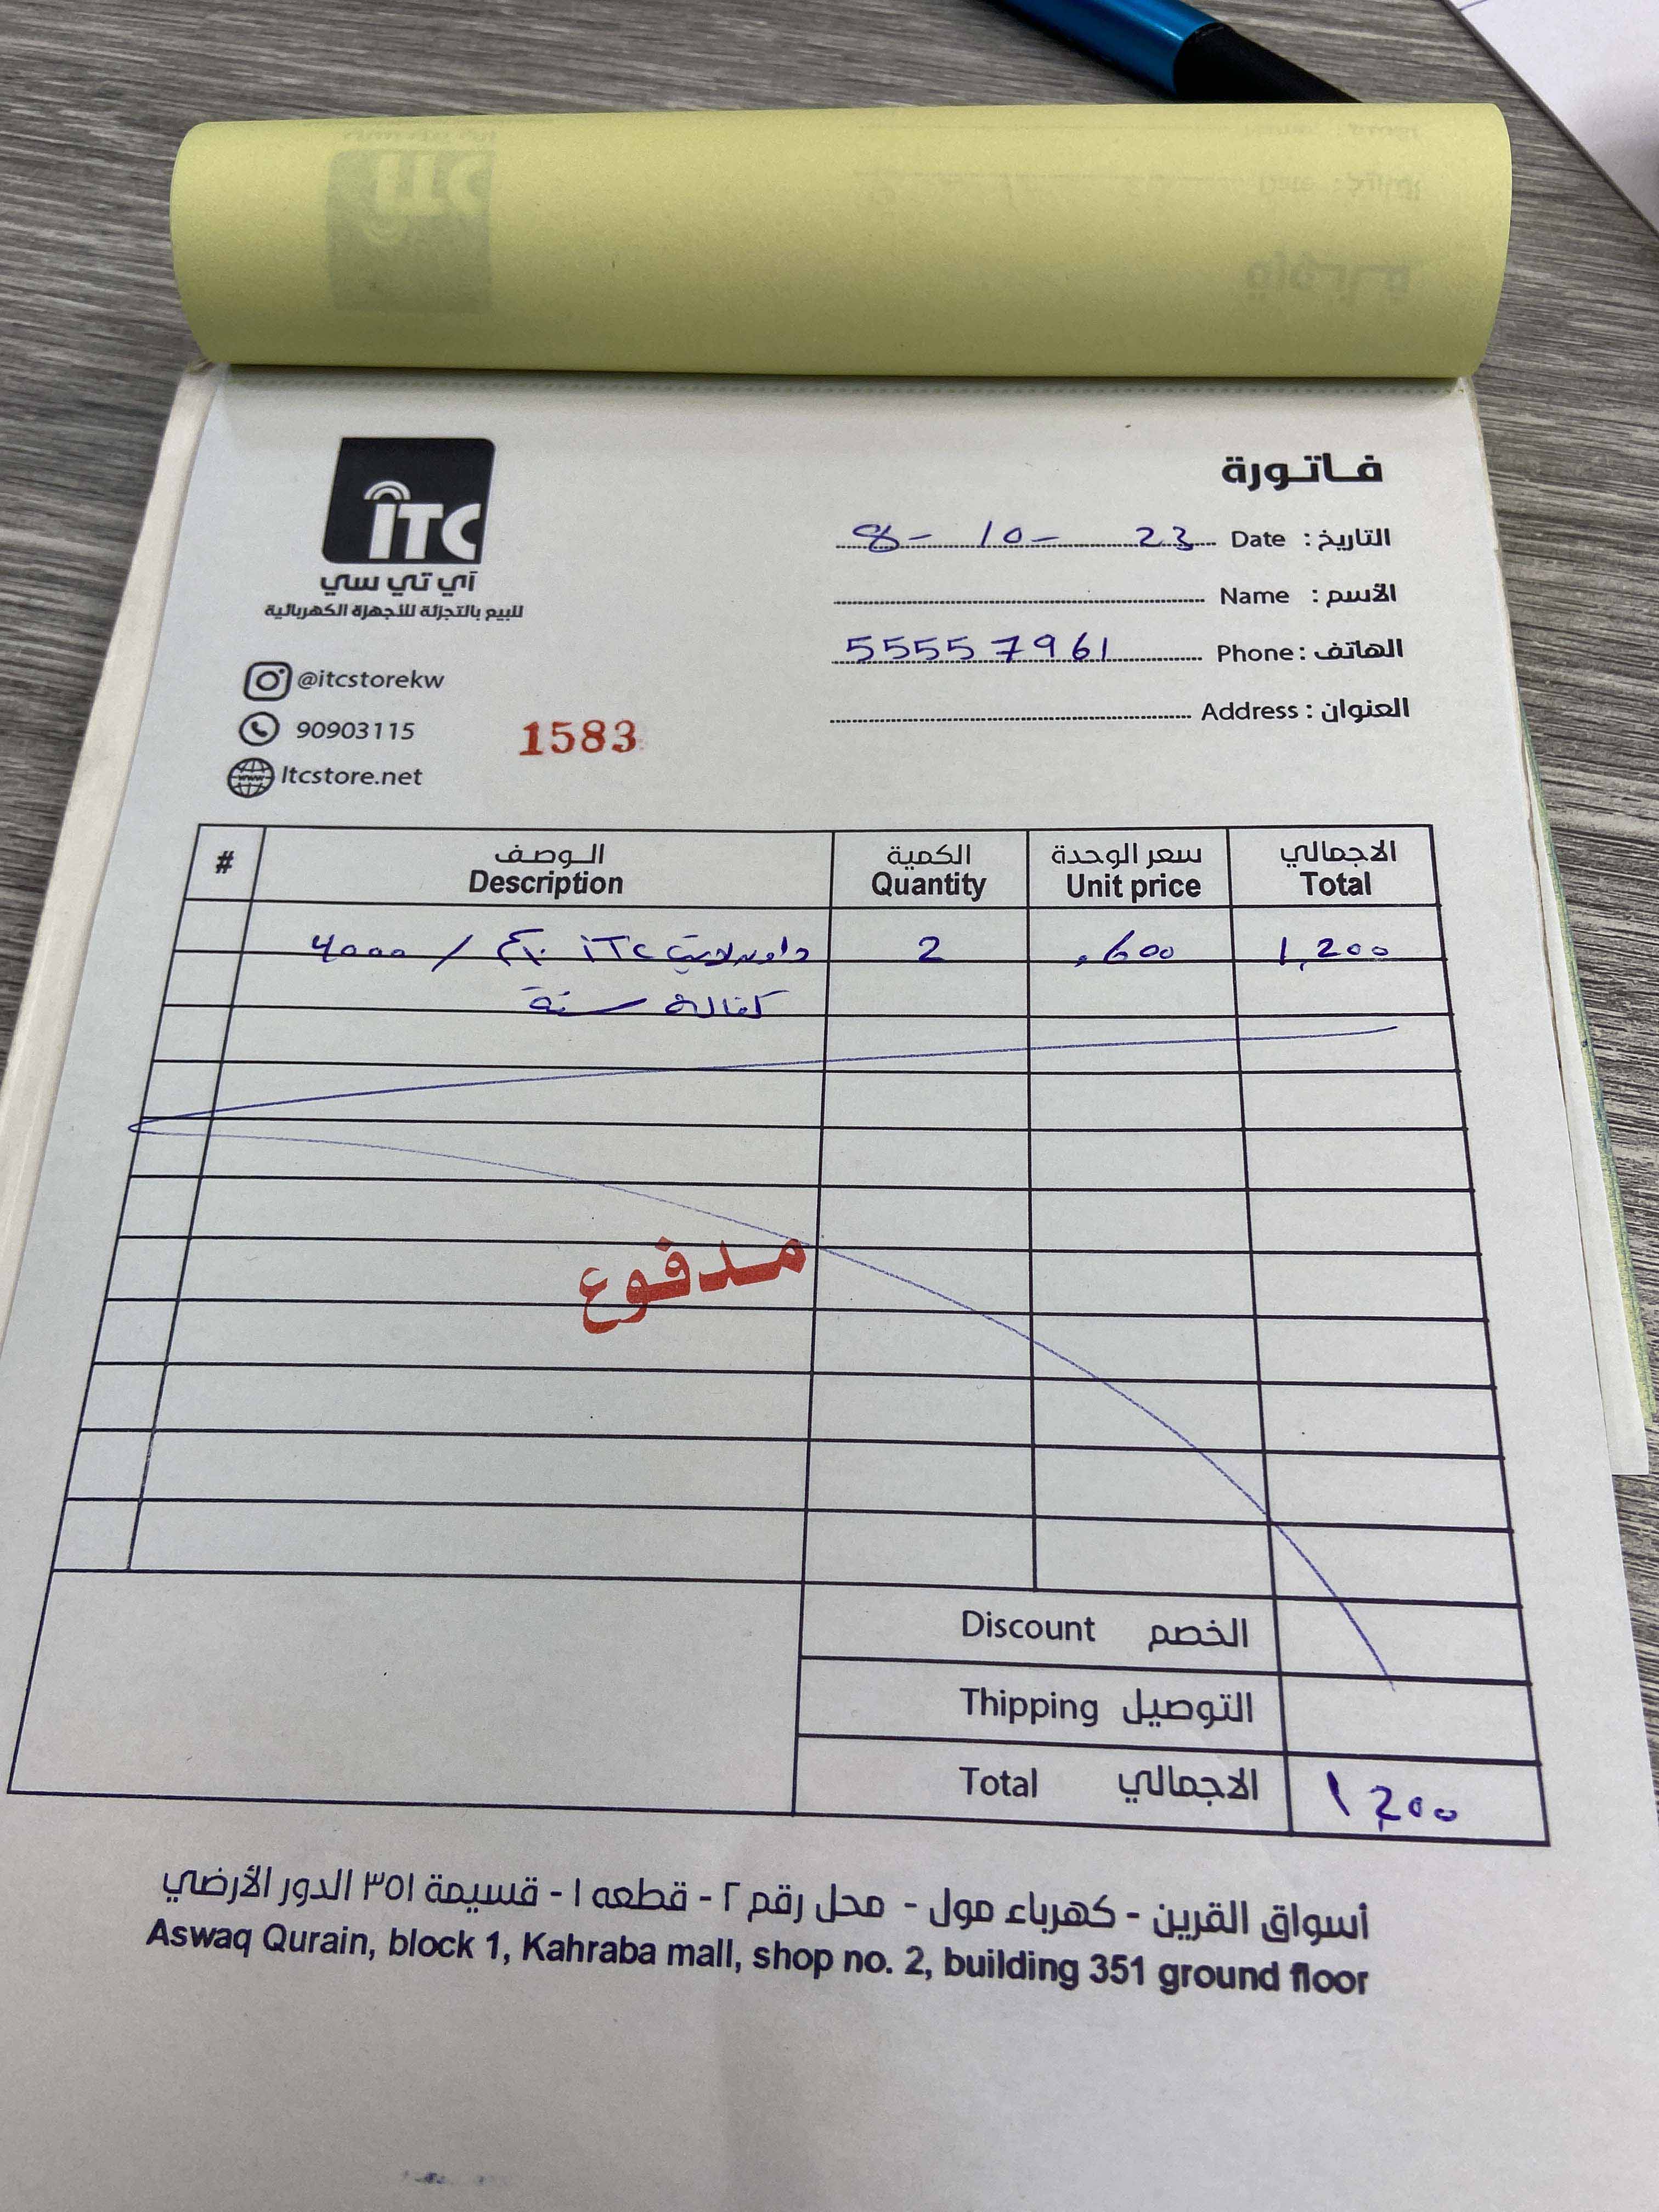 iTC
آي تي سي
للبيع بالتجزئة للأجهزة الكهربائية
@itcstorekw
90903115
Itcstore.net
1583
فاتورة
التاريخ : Date 8 - 10 - 23
الأسم : Name
الهاتف : Phone 55557961
العنوان : Address
# الوصف الكمية سعر الوحدة الاجمالي
Description Quantity Unit price Total
داون لايت iTC / 4000 2 .600 1,200
كفالة سنة
مدفوع
Discount الخصم
Thipping التوصيل
Total الاجمالي 1,200
أسواق القرين - كهرباء مول - محل رقم ٢ - قطعه ١ - قسيمة ٣٥١ الدور الأرضي
Aswaq Qurain, block 1, Kahraba mall, shop no. 2, building 351 ground floor